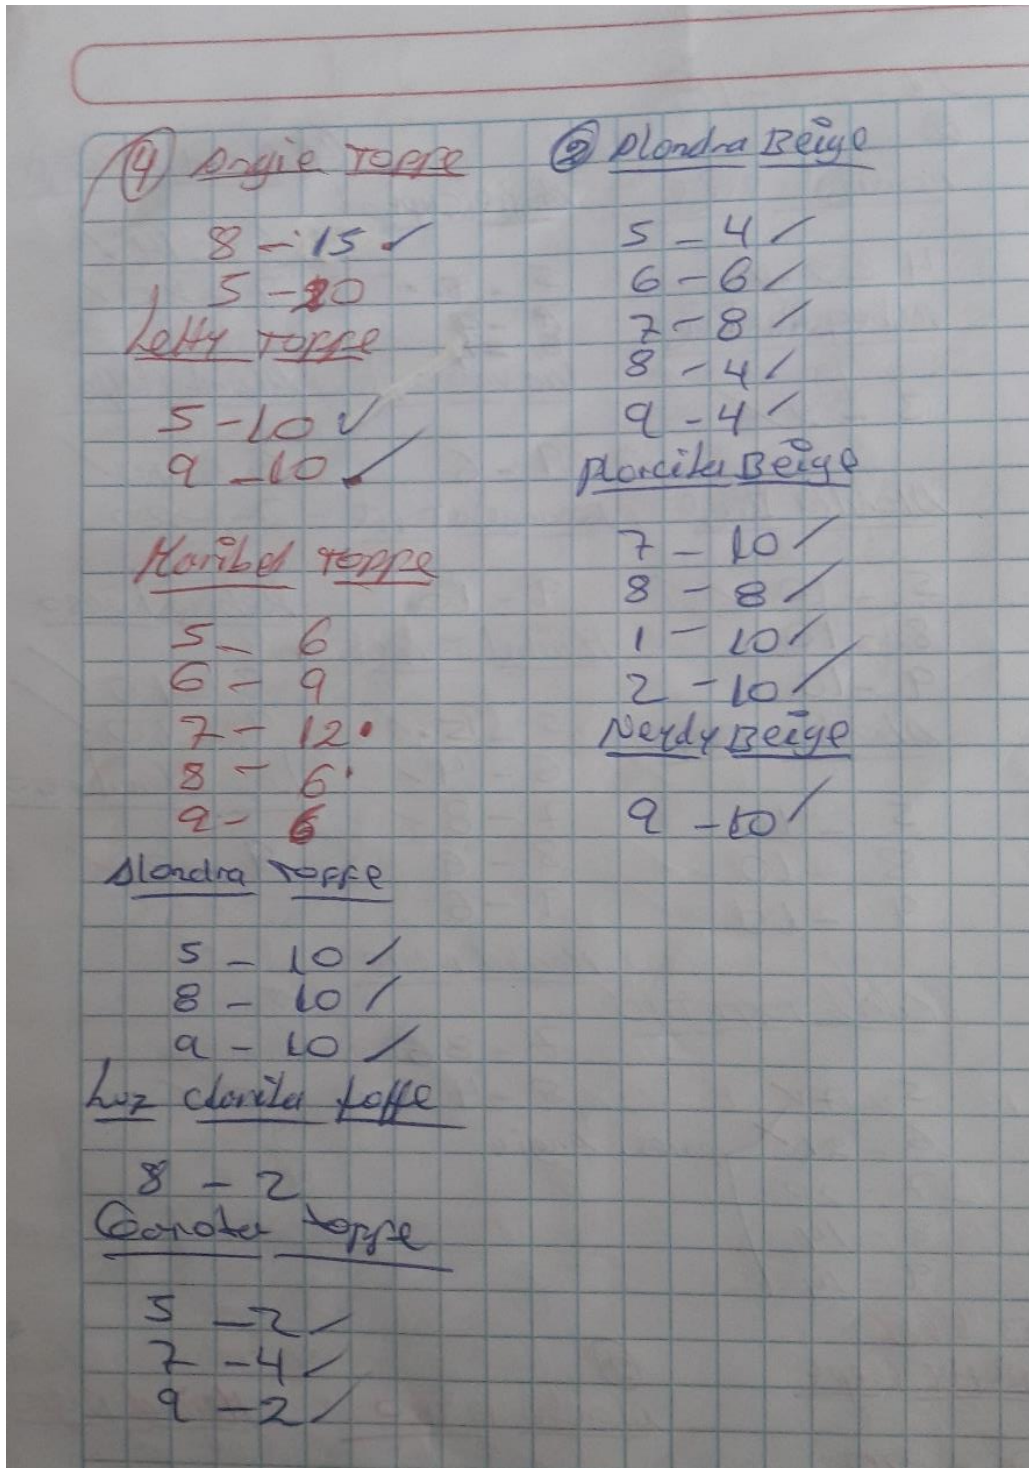 ④ Angie Toffe
8 - 15 ✓
5 - 20
Letty Toffe
5 - 10 ✓
9 - 10 ✓
Maribel Toffe
5 - 6
6 - 9
7 - 12
8 - 6
9 - 6
Alondra Toffe
5 - 10 ✓
8 - 10 ✓
9 - 10 ✓
Luz clarita toffe
8 - 2
toffe
5 - 2 ✓
7 - 4 ✓
9 - 2 ✓
② Alondra Beige
5 - 4 ✓
6 - 6 ✓
7 - 8 ✓
8 - 4 ✓
9 - 4 ✓
Beige
7 - 10 ✓
8 - 8 ✓
1 - 10 ✓
2 - 10 ✓
Beige
9 - 10 ✓